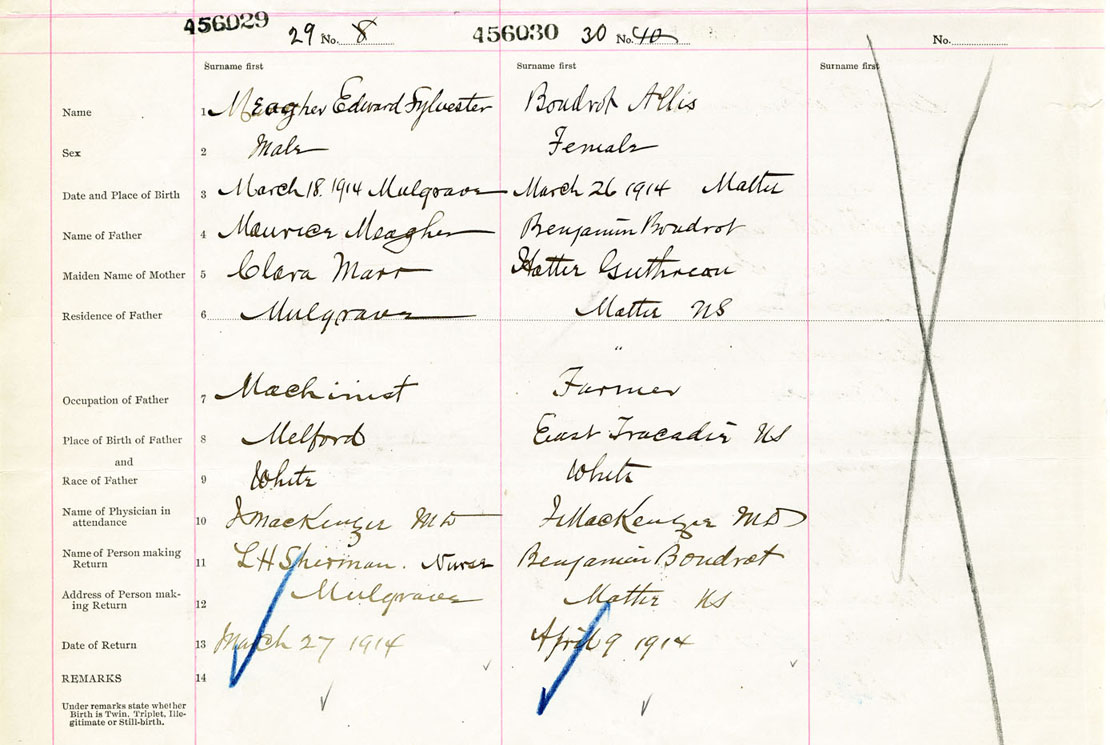 456029 29 No. 8 456030 30 No. 40 No.
Surname first Surname first Surname first
Name 1 Meagher Edward Sylvester Boudrot Allis
Sex 2 Male Female
Date and Place of Birth 3 March 18. 1914 Mulgrave March 26 1914 Mattie
Name of Father 4 Maurice Meagher Benjamin Boudrot
Maiden Name of Mother 5 Clara Marr Hattie
Residence of Father 6 Mulgrave Mattie NS
"
Occupation of Father 7 Machinist Farmer
Place of Birth of Father 8 Melford East Tracadie NS
and
Race of Father 9 White White
Name of Physician in
attendance 10 MacKenzie MD MacKenzie MD
Name of Person making
Return 11 L H Sherman. Nurse Benjamin Boudrot
Address of Person mak-
ing Return 12 Mulgrave Mattie NS
Date of Return 13 March 27 1914 April 9 1914
REMARKS 14
Under remarks state whether
Birth is Twin. Triplet, Ille-
gitimate or Still-birth.